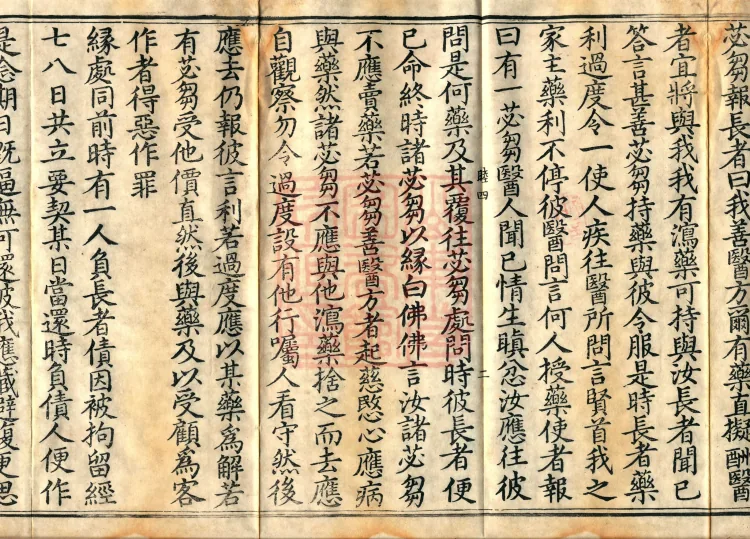 苾芻報長者曰我善醫方爾有藥直擬酬醫
者宜將與我我有瀉藥可持與汝長者聞已
答言甚善苾芻持藥與彼令服是時長者藥
利過度令一使人疾往醫所問言賢首我之
家主藥利不停彼醫問言何人授藥使者報
曰有一苾芻醫人聞已情生瞋忿汝應往彼
睦四 二
問是何藥及其覆往苾芻處問時彼長者便
已命終時諸苾芻以緣白佛佛言汝諸苾芻
不應賣藥若苾芻善醫方者起慈愍心應病
與藥然諸苾芻不應與他瀉藥捨之而去應
自觀察勿令過度設有他行囑人看守然後
應去仍報彼言利若過度應以某藥爲解若
有苾芻受他價直然後與藥及以受顧爲客
作者得惡作罪
緣處同前時有一人負長者債因被拘留經
七八日共立要契某日當還時負債人便作
是念期日既逼無可還彼我應藏避復更思